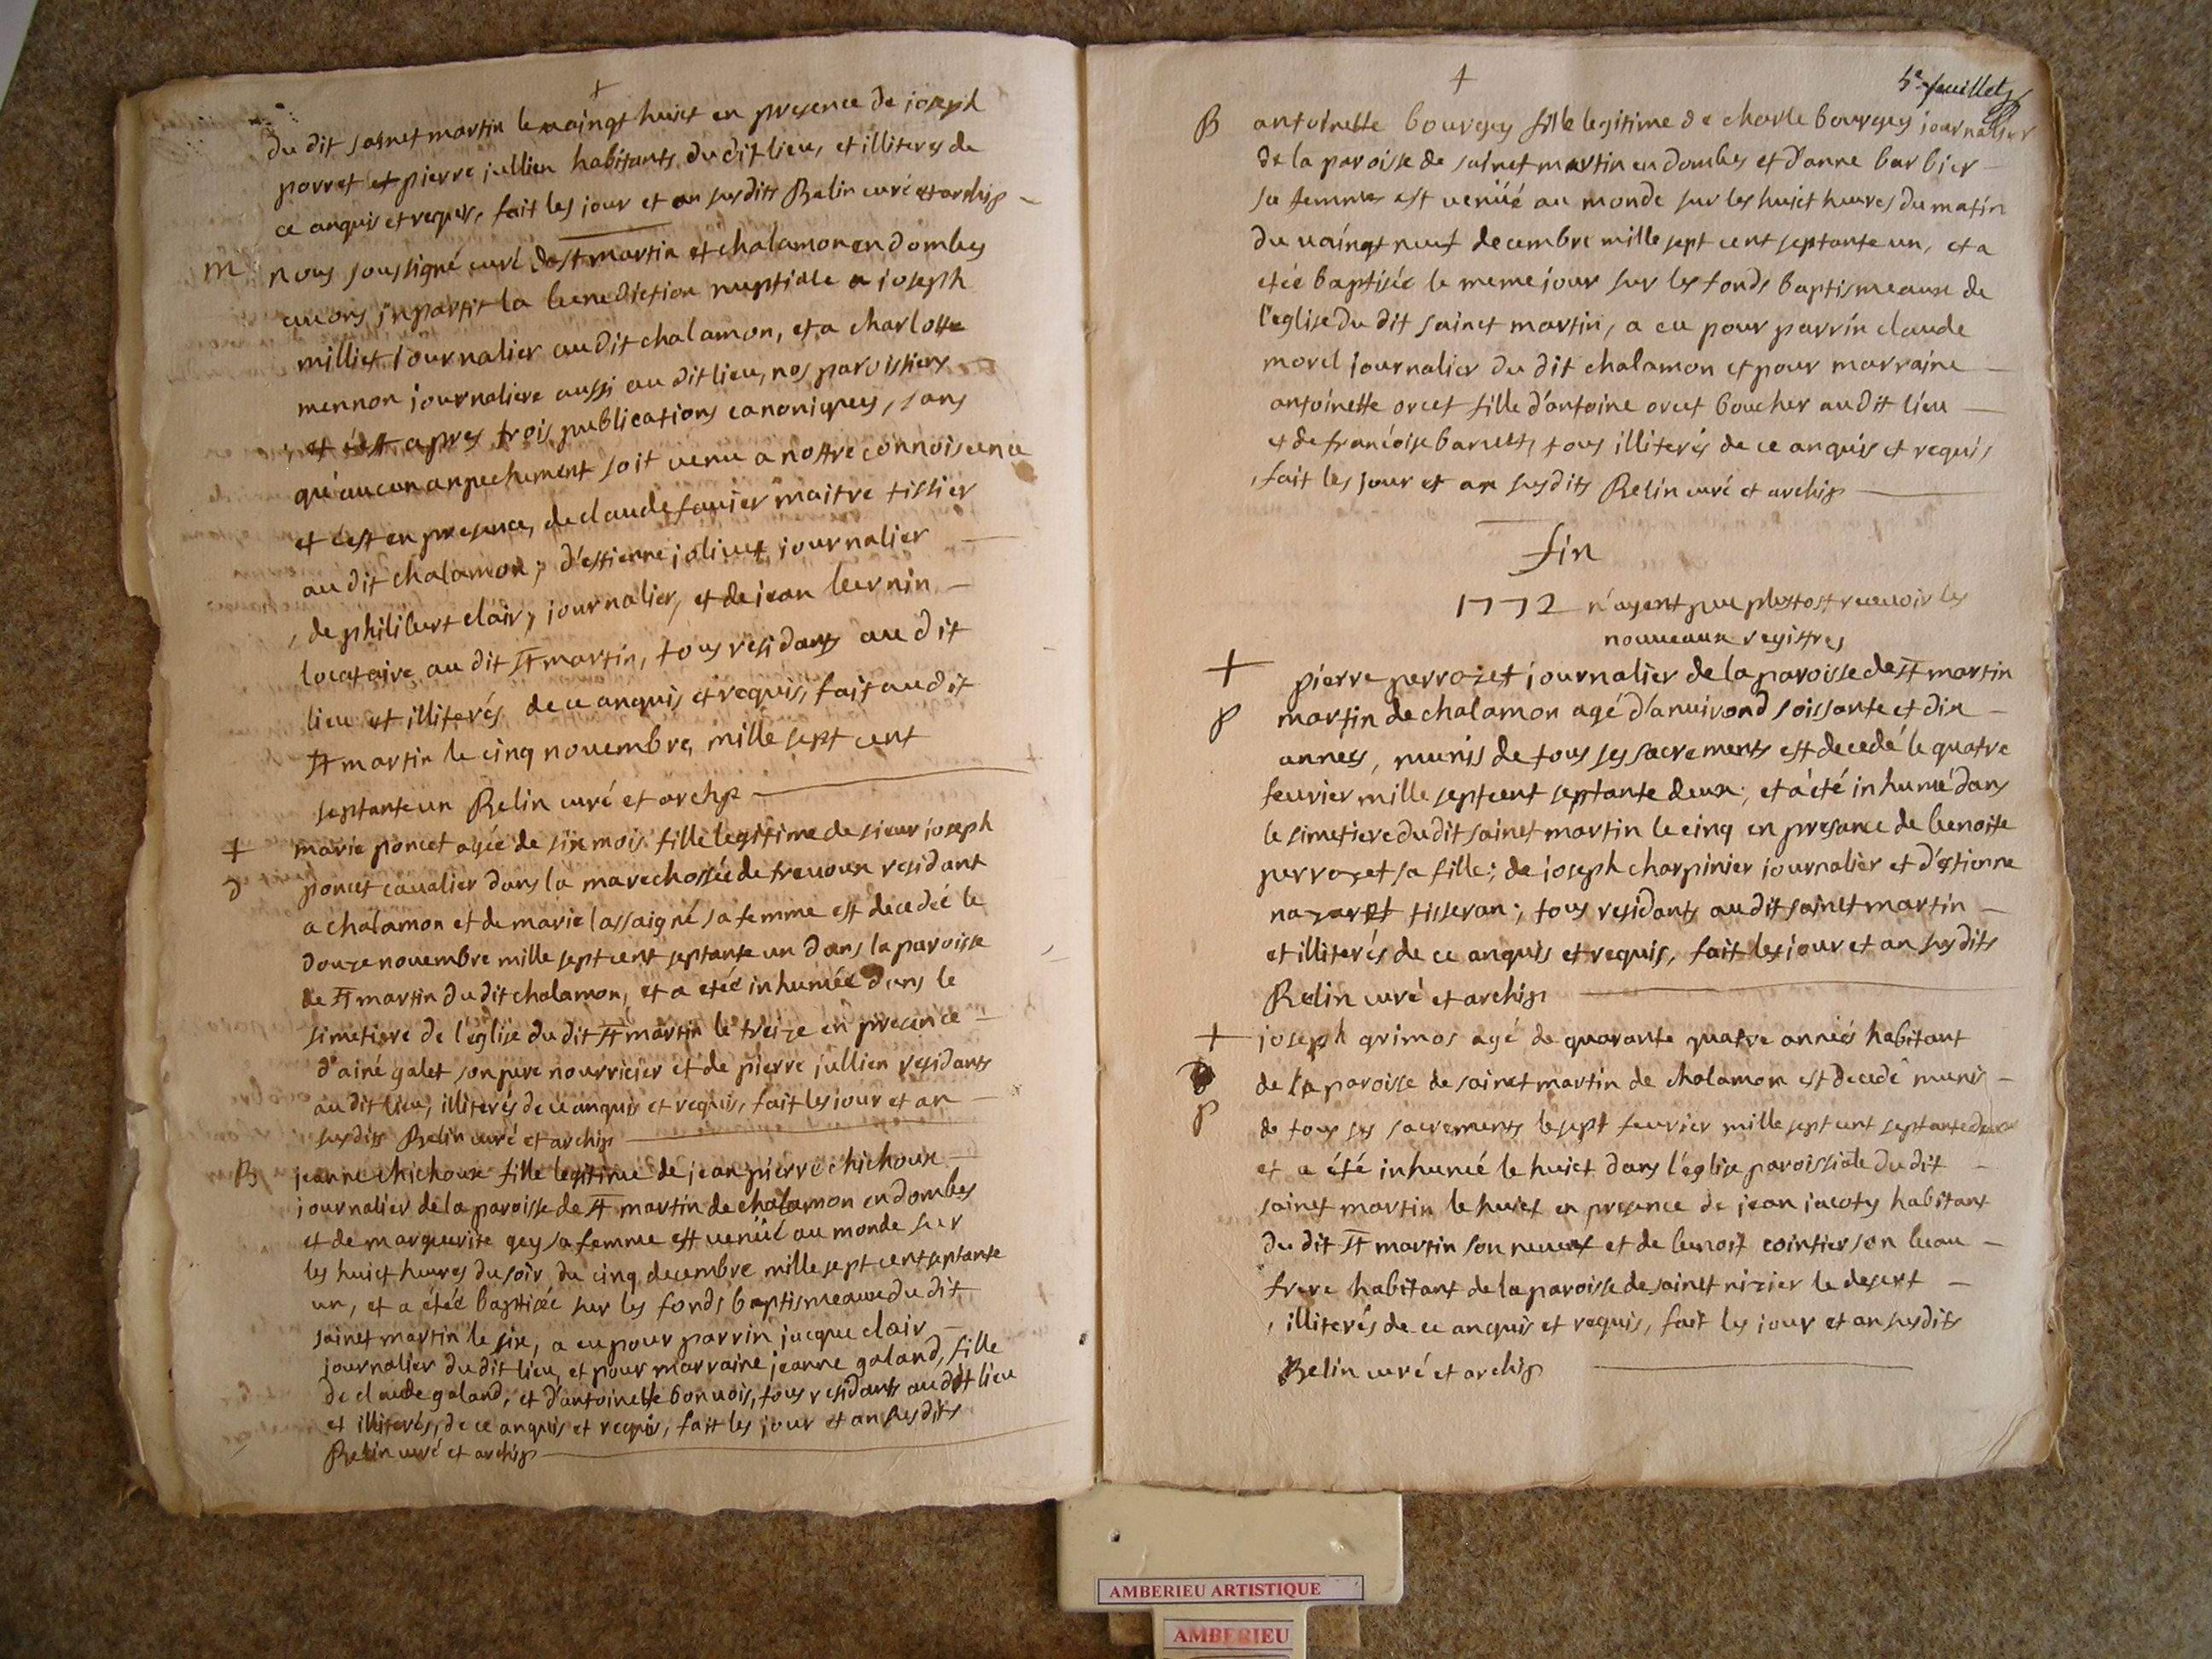 +
du dit sainct martin le vaingt huict en presence de joseph
porret et pierre jullien habitants du dit lieu, et illiteres de
ce anquis et requis, fait les jour et an susdits Belin curé et archip
m nous soussigné curé de st martin et chalamon en dombes
avons inpartit la benediction nuptiale a joseph
milliet journalier au dit chalamon, et a charlotte
mennon journaliere aussi au dit lieu, nos paroissiens
et c'est apres trois publications canoniques, sans
qu'aucun anpechement soit venu a nostre connoisence
et c'est en presence, de claude favier maitre tissier
au dit chalamon; d'estienne jolivet journalier
, de philibert clair, journalier, et de jean bernin
locataire au dit st martin, tous residants au dit
lieu et illiterés de ce anquis et requis, fait au dit
st martin le cinq novembre, mille sept cent
septante un Belin curé et archp
+ marie poncet agée de six mois fille legitime de sieur joseph
d poncet cavalier dans la marechossée de trevoux residant
a chalamon et de marie lassaigne sa femme est decedeé le
douze novembre mille sept cent septante un dans la paroisse
de st martin du dit chalamon, et a eteé inhumeé dans le
simetiere de l'eglise du dit st martin le treize en presence
d'aimé galet son pere nourricier et de pierre jullien residants
au dit lieu, illiterés de ce anquis et requis, fait les jour et an
susdits Belin curé et archip
B jeanne chichoux fille legitime de jean pierre chichoux
journalier de la paroisse de st martin de chalamon en dombes
et de marguerite gey sa femme est venüe au monde sur
les huict heures du soir du cinq decembre mille sept cent septante
un, et a étée baptisée sur les fonds baptismeaux du dit
sainct martin le six, a eu pour parrin jacque clair
journalier du dit lieu, et pour marraine jeanne galand, fille
de claude galand, et d'antoinette bonvois, tous residants au dit lieu
et illiterés, de ce anquis et requis, fait les jour et an susdits
Belin curé et archip
+
5e feuillet
B antoinette bourgey fille legitime de charle bourgey journalier
de la paroisse de sainct martin en dombes et d'anne barbier
sa femme est venüé au monde sur les huict heures du matin
du vaingt neuf decembre mille sept cent septante un, et a
etée baptisée le meme jour sur les fonds baptismeaux de
l'eglise du dit sainct martin, a eu pour parrin claude
morel journalier du dit chalamon et pour marraine
antoinette orcet fille d'antoine orcet boucher au dit lieu
et de françoise barrett, tous illiterés de ce anquis et requis
, fait les jour et an susdits Belin curé et archip
fin
1772 n'ayent pue plustost recevoir les
nouveaux registres
+ pierre perrozet journalier de la paroisse de st martin
p martin de chalamon agé d'anvirond soissante et dix
annees, munis de tous ses sacrements est decedé le quatre
fevrier mille sept cent septante deux, et a été inhumé dans
le simetiere du dit sainct martin le cinq en presance de benoite
perrozet sa fille; de joseph charpinier journalier et d'estienne
tisseran; tous residants au dit sainct martin
et illiterés de ce anquis et requis, fait les jour et an susdits
Belin curé et archip
+ joseph grimos agé de quarante quatre anneés habitant
de la paroisse de sainct martin de chalamon est decedé munis
p de tous ses sacrements le sept fevrier mille sept cent septante deux
et a été inhumé le huict dans l'eglise paroissiale du dit
sainct martin le huict en presence de jean jacoty habitant
du dit st martin son neveut et de benoit cointier son beau
frere habitant de la paroisse de sainct nizier le desert
, illiterés de ce anquis et requis, fait les jour et an susdits
Belin curé et archip
AMBERIEU ARTISTIQUE
AMBERIEU